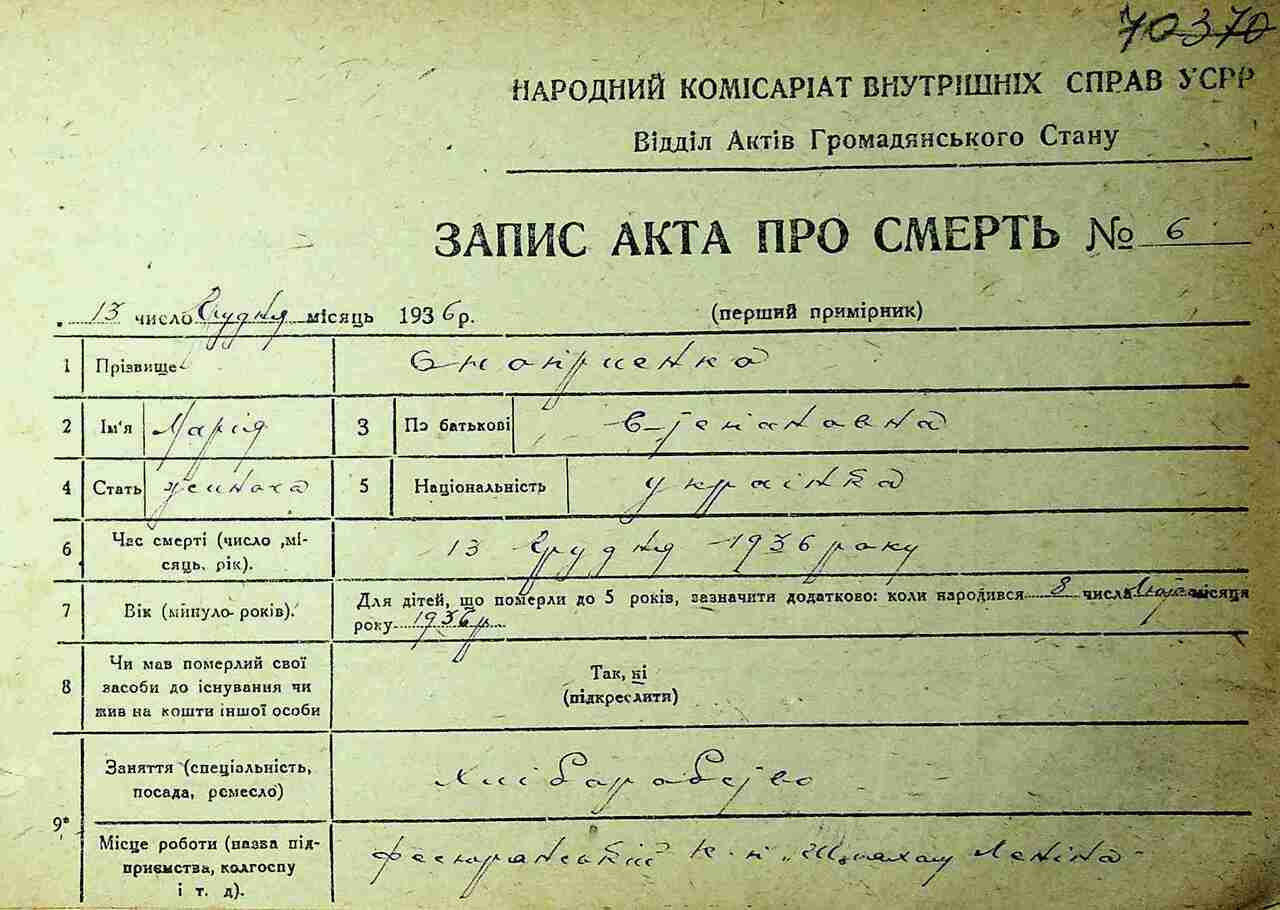 70370
НАРОДНИЙ КОМІСАРІАТ ВНУТРІШНІХ СПРАВ УСРР
Відділ Актів Громадянського Стану
ЗАПИС АКТА ПРО СМЕРТЬ № 6
13 число Грудня місяць 1936 р. (перший примірник)
1 Прізвище Онопрієнко
2 Ім'я Марія 3 По батькові Степановна
4 Стать 5 Національність українка
6 Час смерті (число ,мі-
сяць. рік). 13 грудня 1936 року
7 Вік (минуло років). Для дітей, що померли до 5 років, зазначити додатково: коли народився 8 числа Лютого місяця
року 1936 р.
8 Чи мав померлий свої
засоби до існування чи
жив на кошти іншої особи
Так, ні
(підкреслити)
9 Заняття (спеціальність,
посада, ремесло) хліборобство
Місце роботи (назва під-
приємства, колгоспу
і т. д). Леніна